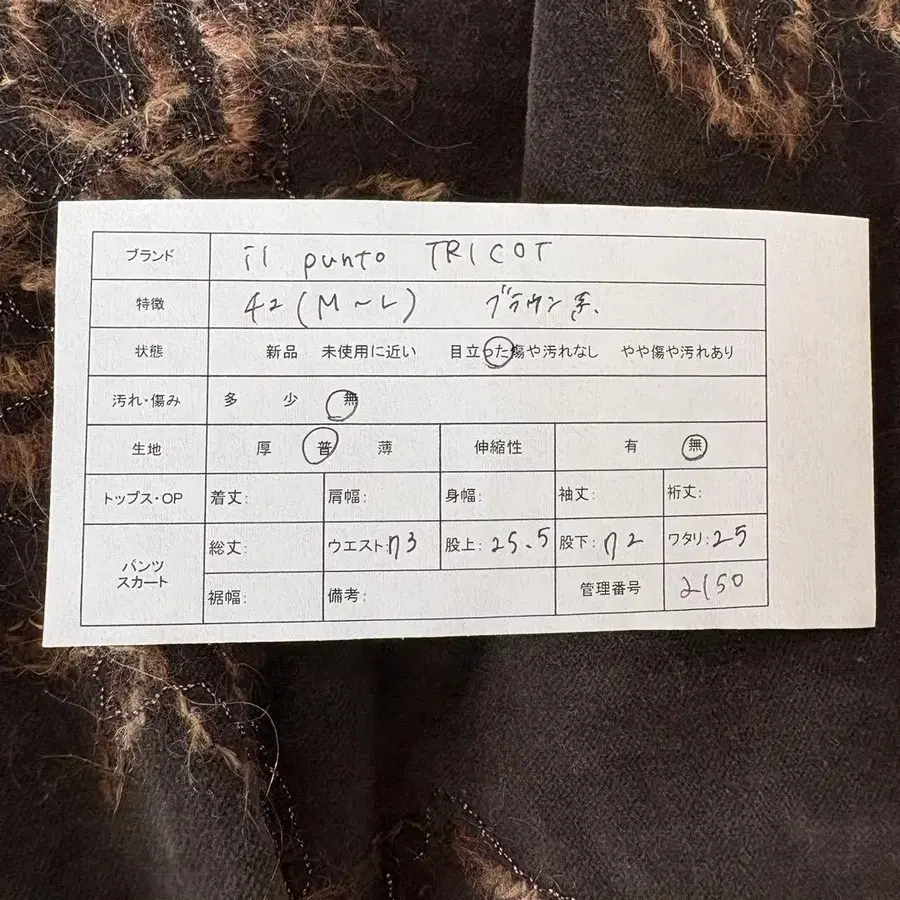 ブランド il punto TRICOT
特徴 42(M〜L) ブラウン系、
状態 新品 未使用に近い 目立った傷や汚れなし やや傷や汚れあり
汚れ・傷み 多 少 無
生地 厚 普 薄 伸縮性 有 無
トップス・OP 着丈: 肩幅: 身幅: 袖丈: 裄丈:
パンツ
スカート
総丈: ウエスト:73 股上:25.5 股下:72 ワタリ:25
裾幅: 備考: 管理番号 2150